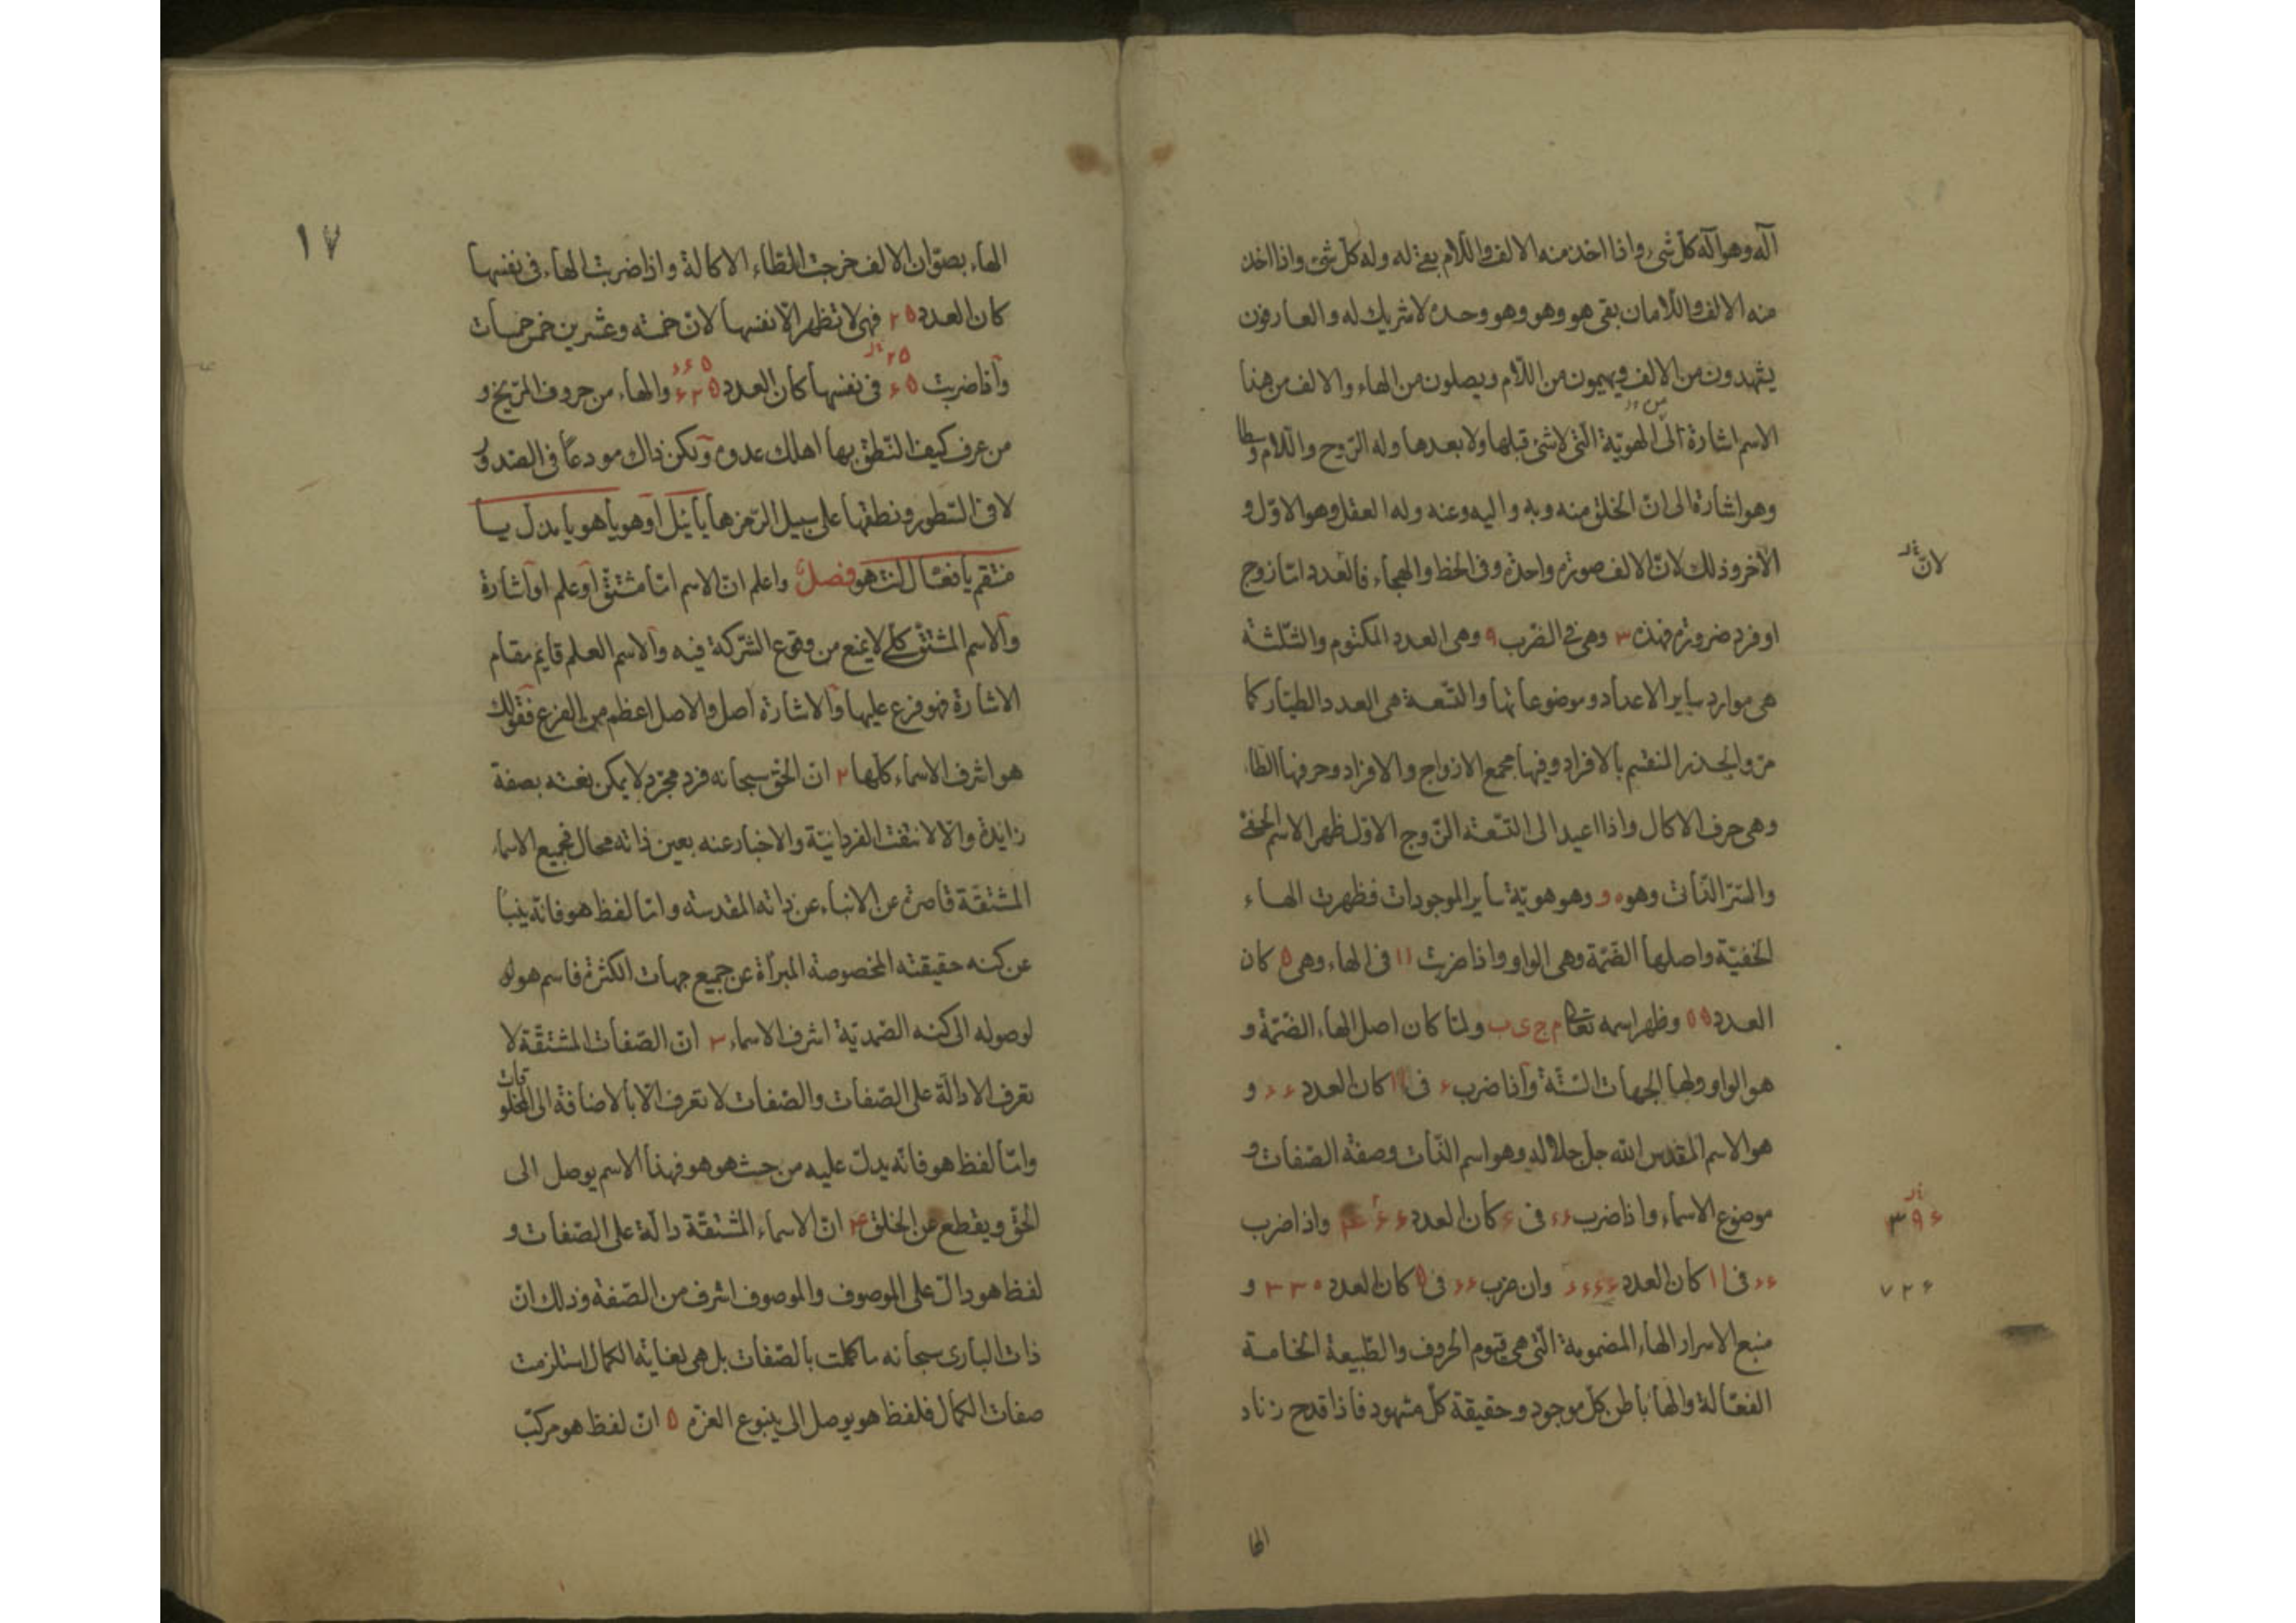 آله وهو آله كل شئ واذا اخذ منه الالف واللام بقى له وله كل شئ واذا اخذ
منه الالف واللامان بقى هو وهو وهو وحده لا شريك له والعارفون
يشهدون من الالف ويهيمون من اللام ويصلون من الهاء والالف من هذا
الاسم اشارة الى الهوية التى لا شئ قبلها ولا بعدها وله الروح واللام وسطا
وهو اشارة الى ان الخلق منه وبه واليه وعنه وله العقل وهو الاول و
الآخر وذلك لان الالف صورة واحدة وفى الخط والهجاء فالعدد امّا زوج
لانّ
او فرد ضرورة فهذه ٣ وهى فى الضرب ٩ وهى العدد المكتوم والثلثة
هى موارد ساير الاعداد وموضوعاتها والتسعة هى العدد الطيار كما
مرّ والجذر المنقسم بالافراد وفيها مجمع الازواج والافراد وحرفها الطاء
وهى حرف الاكال واذا اعيد الى التسعة الزوج الاول ظهر الاسم الخفى
والسر الذاتى وهو ه و وهو هوية ساير الموجودات فظهرت الهاء
الخفية واصلها الضمة وهى الواو واذا ضربت ١١ فى الهاء وهى ٥ كان
العدد ٥٥ وظهر اسمه تعالى م ج ى ب ولما كان اصل الهاء الضمة و
هو الواو ولها الجهات الستة واذا ضرب ۶ فى ١١ كان العدد ۶۶ و
هو الاسم المقدس الله جل جلاله وهو اسم الذات وصفة الصفات و
موضوع الاسماء واذا ضرب ۶۶ فى ۶ كان العدد واذا ضرب
٣٩۶
۶۶ فى ١١ كان العدد وان ضرب ۶۶ فى ٥ كان العدد ٣٣٠ و
٧٢۶
منبع الاسرار الهاء المضمومة التى هى قيوم الحروف والطبيعة الخامسة
الفعالة والهاء باطن كل موجود وحقيقة كل مشهود فاذا قدح زناد
الها
١٧
الهاء بصوّان الالف خرجت الظاء الاكالة واذا ضربت الهاء فى نفسها
كان العدد ٢٥ فهى لا تظهر الا نفسها لان خمسة وعشرين خمس خمسات
٢٥
واذا ضربت ۶٥ فى نفسها كان العدد ۶٢٥ والهاء من حروف المريخ و
من عرف كيف النطق بها اهلك عدوه وليكن ذاك مودعاً فى الصدور
لا فى السطور ونطقها على سبيل الرمز هايائيل اوهو ياهو يا مذل يا
منتقم يا فعال انت هو فصلٌ واعلم انّ الاسم امّا مشتق او علم او اشارة
والاسم المشتق كلى لا يمنع من وقوع الشركة فيه والاسم العلم قايم مقام
الاشارة فهو فرع عليها والاشارة اصل والاصل اعظم من الفرع فقولك
هو اشرف الاسماء كلها ٢ ان الحق سبحانه فرد مجرد لا يمكن نعته بصفة
زايدة والا لانتفت الفردانية والاخبار عنه بعين ذاته محال فجميع الاسماء
المشتقة قاصرة عن الانباء عن ذاته المقدسة وامّا لفظ هو فانه ينبأ
عن كنه حقيقته المخصوصة المبرأة عن جميع جهات الكثرة فاسم هو له
لوصوله الى كنه الصمدية اشرف الاسماء ٣ ان الصفات المشتقة لا
تعرف الا دالة على الصفات والصفات لا تعرف الا بالاضافة الى المخلوقات
وامّا لفظ هو فانه يدل عليه من حيث هو هو فهذا الاسم يوصل الى
الحق ويقطع عن الخلق ۴ ان الاسماء المشتقة دالة على الصفات و
لفظ هو دال على الموصوف والموصوف اشرف من الصفة وذلك ان
ذات البارى سبحانه ما كملت بالصفات بل هى لغاية الكمال استلزمت
صفات الكمال فلفظ هو يوصل الى ينبوع العزّة ٥ ان لفظ هو مركب